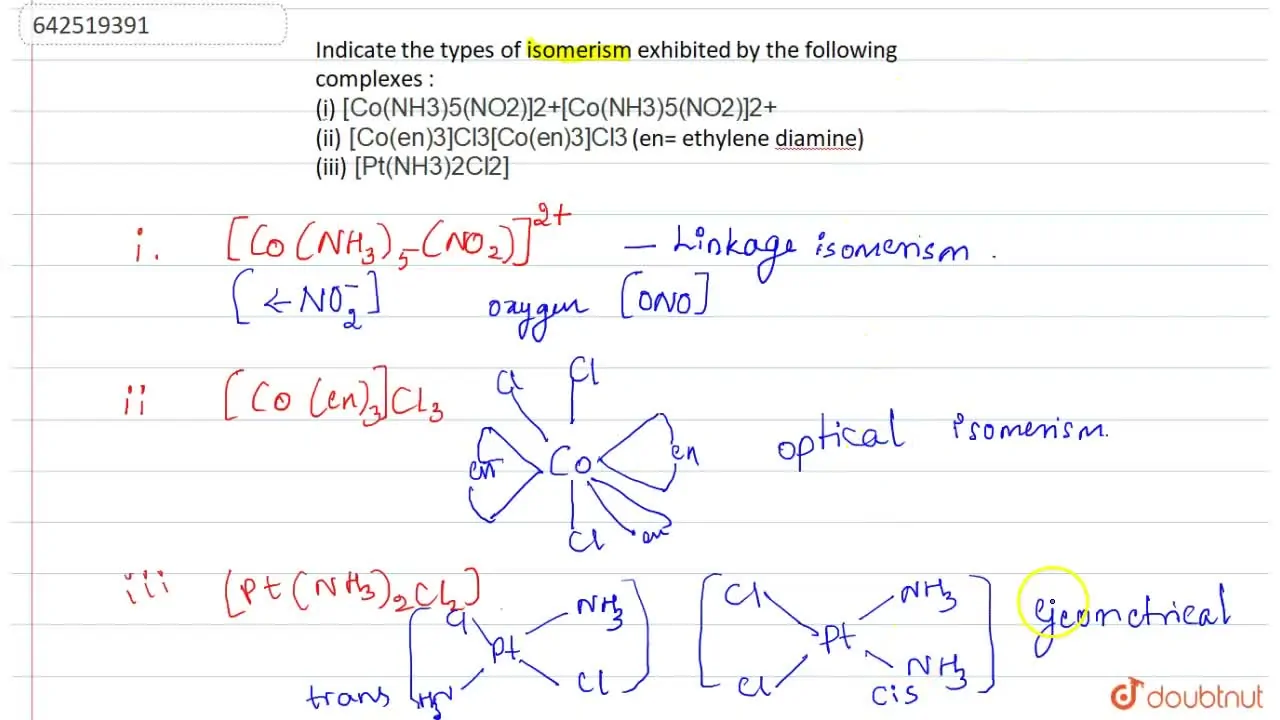 642519391
Indicate the types of isomerism exhibited by the following
complexes :
(i) [Co(NH3)5(NO2)]2+[Co(NH3)5(NO2)]2+
(ii) [Co(en)3]Cl3[Co(en)3]Cl3 (en= ethylene diamine)
(iii) [Pt(NH3)2Cl2]
i. [Co(NH₃)₅(NO₂)]²⁺ — Linkage isomerism.
[←NO₂⁻] oxygen [ONO]
ii [Co(en)₃]Cl₃
Cl Cl
en Co en
Cl en
optical isomerism.
iii [Pt(NH₃)₂Cl₂]
Cl NH₃
Pt
H₃N Cl
trans
Cl NH₃
Pt
Cl NH₃
cis
Geometrical
doubtnut